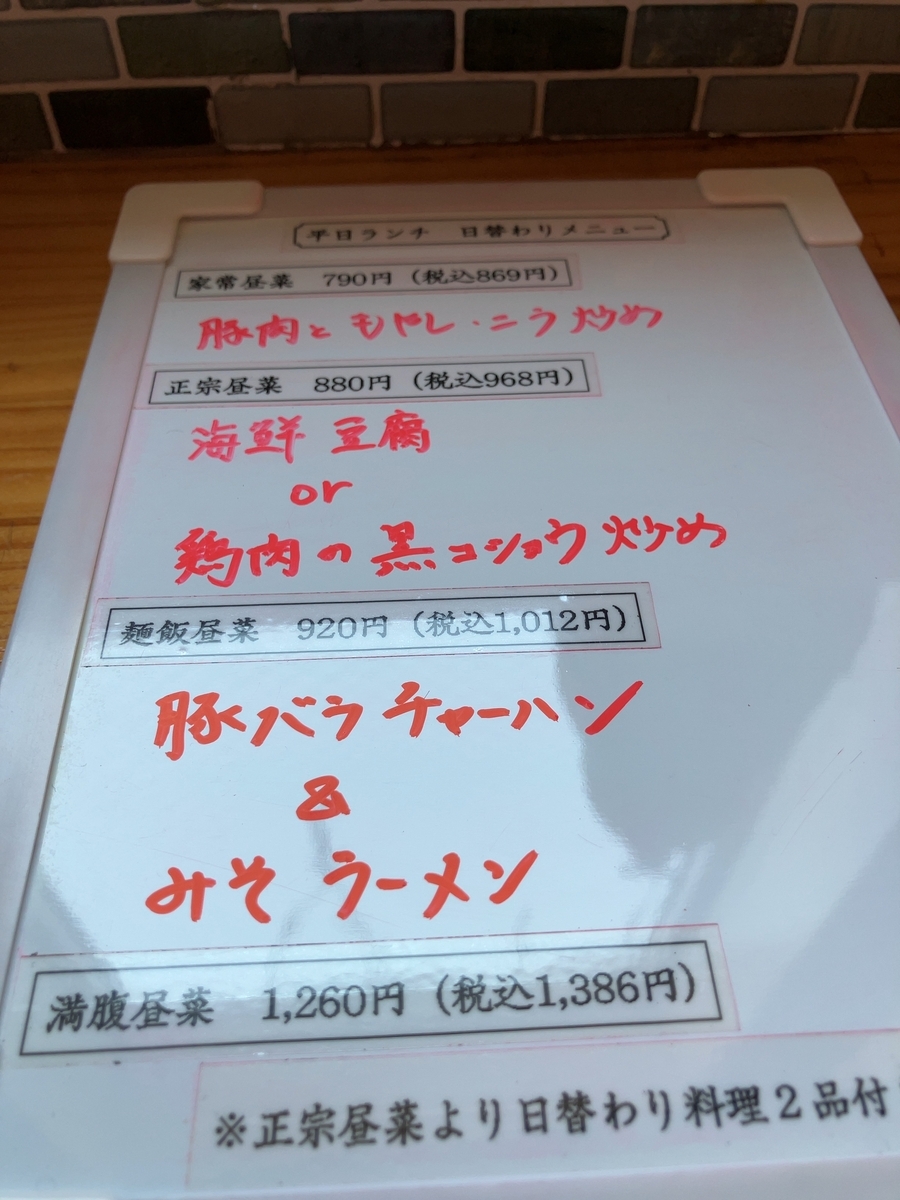 平日ランチ 日替わりメニュー
家常昼菜 790円（税込869円）
豚肉ともやし・ニラ炒め
正宗昼菜 880円（税込968円）
海鮮豆腐
or
鶏肉の黒コショウ炒め
麺飯昼菜 920円（税込1,012円）
豚バラチャーハン
&
みそラーメン
満腹昼菜 1,260円（税込1,386円）
※正宗昼菜より日替わり料理２品付